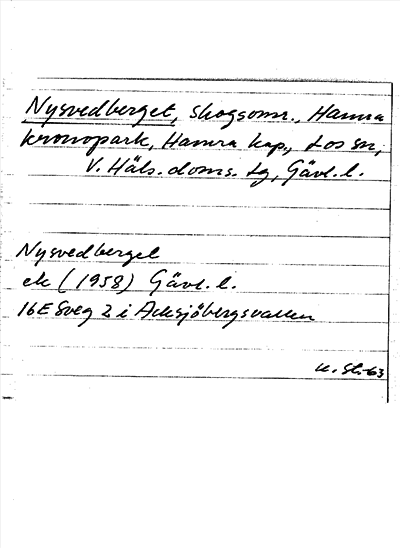 Nysvedberget, skogsomr., Hamra
kronopark, Hamra kap., Los sn,
V. Häls. doms. tg, Gävl. l.
Nysvedberget
ek (1958) Gävl. l.
16E Sveg 2 i Acksjöbergsvallen
St. 63